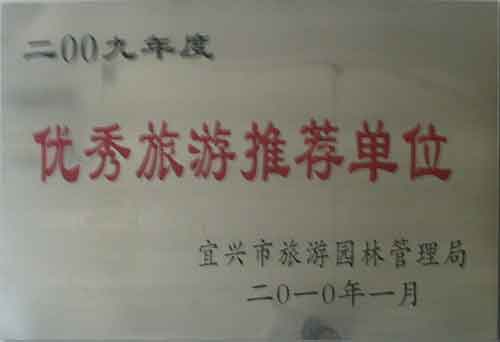 二00九年度
优秀旅游推荐单位
宜兴市旅游园林管理局
二0一0年一月